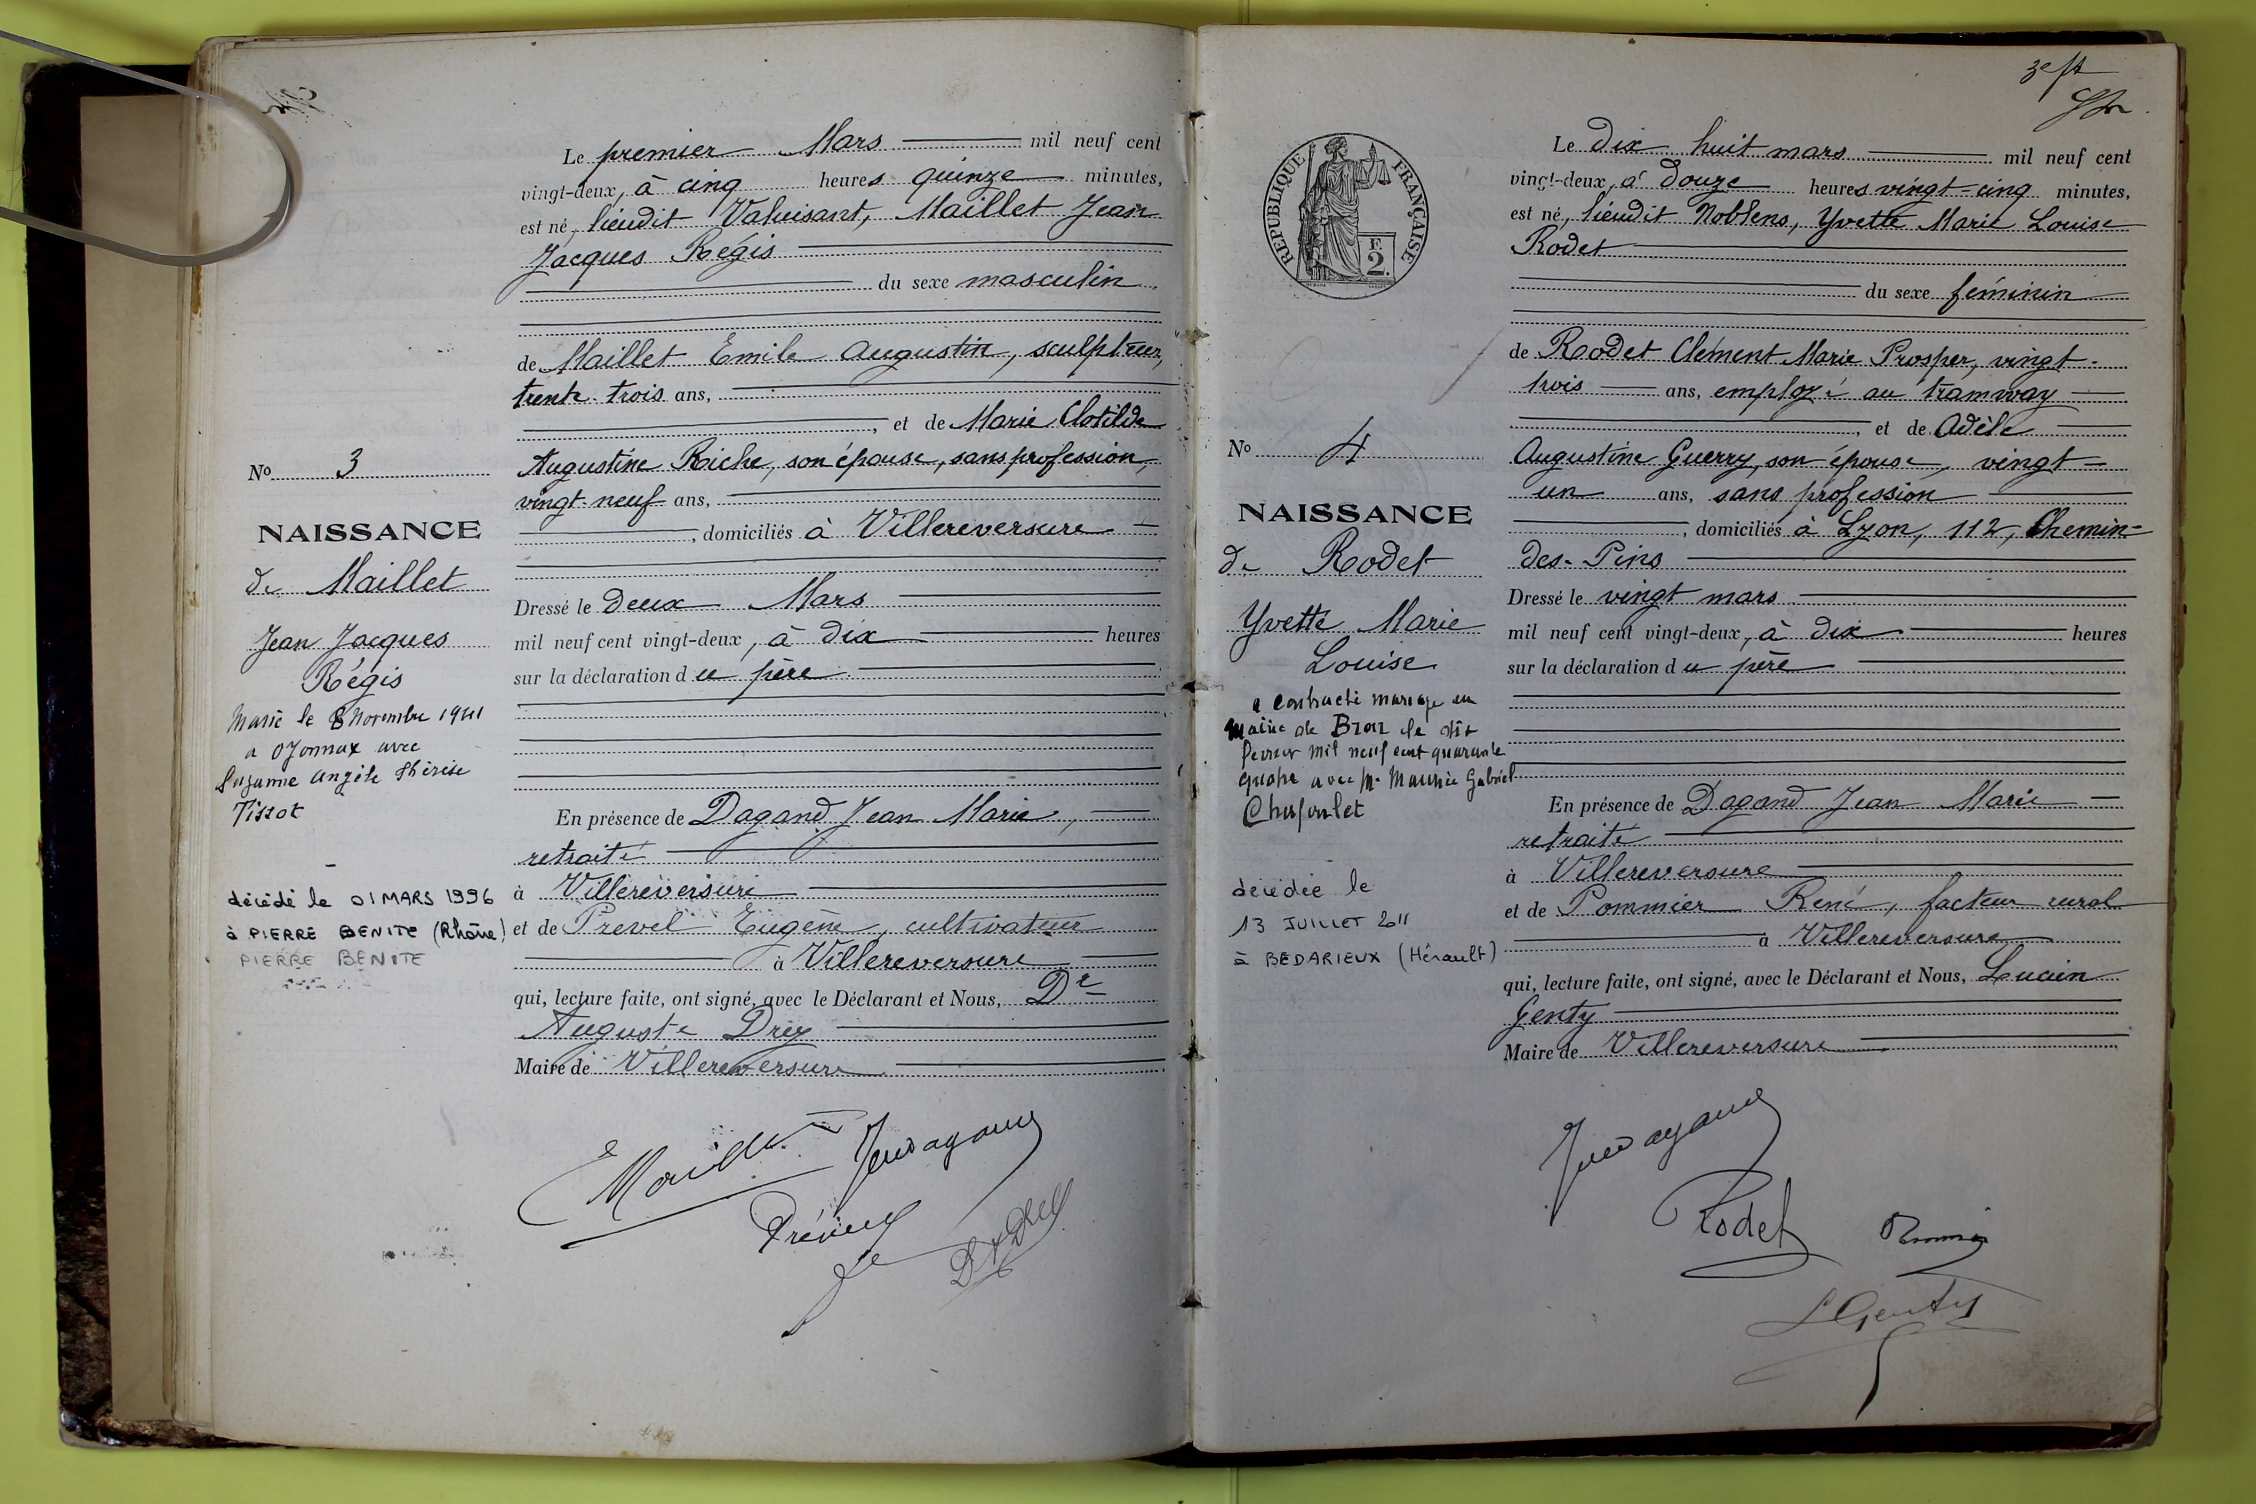 Le premier Mars mil neuf cent
vingt-deux, à cinq heures quinze minutes,
est né, lieudit Valuisant, Maillet Jean
Jacques Régis
du sexe masculin
de Maillet Emile Augustin, sculpteur,
trente-trois ans,
, et de Marie Clotilde
Augustine Riche, son épouse, sans profession,
vingt-neuf ans,
, domiciliés à Villereversure
Dressé le deux Mars
mil neuf cent vingt-deux, à dix heures
sur la déclaration du père
En présence de Dagand Jean Marie,
retraité
à Villereversure
et de Prevel Eugène, cultivateur
à Villereversure
qui, lecture faite, ont signé, avec le Déclarant et Nous, Dr
Auguste Drey
Maire de Villereversure
No 3
NAISSANCE
de Maillet
Jean Jacques
Régis
Marié le 8 Novembre 1941
a Oyonnax avec
Suzanne Angèle Thérèse
Tissot
décédé le 01 MARS 1996
à PIERRE BENITE (Rhône)
PIERRE BENITE
3e
RÉPUBLIQUE FRANÇAISE
E
2.
Le dix huit mars mil neuf cent
vingt-deux, à douze heures vingt-cinq minutes,
est né, lieudit Noblens, Yvette Marie Louise
Rodet
du sexe féminin
de Rodet Clément Marie Prosper, vingt-
trois ans, employé au tramway
, et de Adèle
Augustine Guerry, son épouse, vingt-
un ans, sans profession
, domiciliés à Lyon, 112, Chemin-
des-Pins
Dressé le vingt mars
mil neuf cent vingt-deux, à dix heures
sur la déclaration du père
En présence de Dagand Jean Marie
retraité
à Villereversure
et de Pommier René, facteur rural
à Villereversure
qui, lecture faite, ont signé, avec le Déclarant et Nous, Lucien
Genty
Maire de Villereversure
No 4
NAISSANCE
de Rodet
Yvette Marie
Louise
a contracté mariage en
Mairie de Bron le
fevrier mil neuf cent quarante
quatre avec Mr Maurice Gabriel
décédée le
13 JUILLET 2011
à BEDARIEUX (Hérault)
E Maillet
Rodet
L Genty